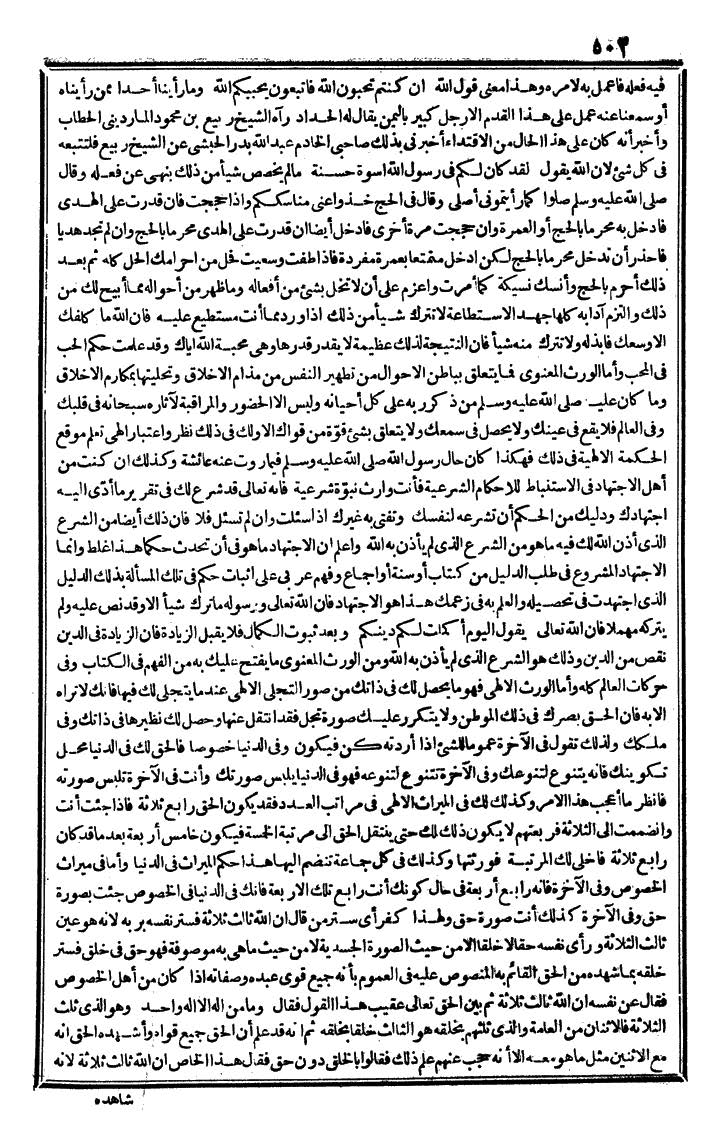 ٥٠٣
فيه فعله فاعمل به لامره وهذا معنى قول الله ان كنتم تحبون الله فاتبعون يحببكم الله وما رأينا أحدا ممن رأيناه
أو سمعنا عنه عمل على هذا القدم الارجل كبير باليمن يقال له الحداد رآه الشيخ ربيع بن محمود الماردينى الحطاب
وأخبر أنه كان على هذا الحال من الاقتداء أخبرنى بذلك صاحبى الخادم عبد الله بدر الحبشى عن الشيخ ربيع فلتتبعه
فى كل شئ لان الله يقول لقد كان لكم فى رسول الله اسوة حسنة مالم يخصص شيأ من ذلك بنهى عن فعله وقال
صلى الله عليه وسلم صلوا كما رأيتمونى أصلى وقال فى الحج خذوا عنى مناسككم واذا حججت فان قدرت على الهدى
فادخل به محرما بالحج أو العمرة وان حججت مرة أخرى فادخل أيضا ان قدرت على الهدى محرما بالحج وان لم تجد هديا
فاحذر أن تدخل محرما بالحج لكن ادخل متمتعا بعمرة مفردة فاذا طفت وسعيت فحل من احرامك الحل كله ثم بعد
ذلك أحرم بالحج وأنسك نسيكة كما أمرت واعزم على أن لا تخل بشئ من أفعاله وما ظهر من أحواله مما أبيح لك من
ذلك والتزم آدابه كلها جهد الاستطاعة لا تترك شيأ من ذلك اذا ورد مما أنت مستطيع عليه فان الله ما كلفك
الا وسعك فابذله ولا تترك منه شيأ فان النتيجة لذلك عظيمة لا يقدر قدرها وهى محبة الله اياك وقد علمت حكم الحب
فى المحب وأما الورث المعنوى فما يتعلق بباطن الاحوال من تطهير النفس من مذام الاخلاق وتحليتها بمكارم الاخلاق
وما كان عليه صلى الله عليه وسلم من ذكر ربه على كل أحيانه وليس الا الحضور والمراقبة لآثاره سبحانه فى قلبك
وفى العالم فلا يقع فى عينك ولا يحصل فى سمعك ولا يتعلق بشئ قوة من قواك الا ولك فى ذلك نظر واعتبار الهى تعلم موقع
الحكمة الالهية فى ذلك فهكذا كان حال رسول الله صلى الله عليه وسلم فيما روت عنه عائشة وكذلك ان كنت من
أهل الاجتهاد فى الاستنباط للاحكام الشرعية فأنت وارث نبوة شرعية فانه تعالى قد شرع لك فى تقرير ما أدى اليه
اجتهادك ودليك من الحكم أن تشرعه لنفسك وتفتى به غيرك اذا سئلت وان لم تسئل فلا فان ذلك أيضا من الشرع
الذى أذن الله لك فيه ما هو من الشرع الذى لم يأذن به الله واعلم ان الاجتهاد ما هو فى أن تحدث حكما هذا غلط وانما
الاجتهاد المشروع فى طلب الدليل من كتاب أو سنة أو اجماع وفهم عربى على اثبات حكم فى تلك المسألة بذلك الدليل
الذى اجتهدت فى تحصيله والعلم به فى زعمك هذا هو الاجتهاد فان الله تعالى ورسوله ما ترك شيأ الا وقد نص عليه ولم
يتركه مهملا فان الله تعالى يقول اليوم أكملت لكم دينكم وبعد ثبوت الكمال فلا يقبل الزيادة فان الزيادة فى الدين
نقص من الدين وذلك هو الشرع الذى لم يأذن به الله ومن الورث المعنوى ما يفتح عليك به من الفهم فى الكتاب وفى
حركات العالم كله وأما الورث الالهى فهو ما يحصل لك فى ذاتك من صور التجلى الالهى عند ما يتجلى لك فيها فانك لا تراه
الا به فان الحق بصرك فى ذلك الموطن ولا يتكرر عليك صورة تجل فقد انتقل عنها وحصل لك نظيرها فى ذاتك وفى
ملكك ولذلك تقول فى الآخرة عموما للشئ اذا أردته كن فيكون وفى الدنيا خصوصا فالحق لك فى الدنيا محل
تكوينك فانه يتنوع لتنوعك وفى الآخرة تتنوع لتنوعه فهو فى الدنيا يلبس صورتك وأنت فى الآخرة تلبس صورته
فانظر ما أعجب هذا الامر وكذلك لك فى الميراث الالهى فى مراتب العدد فقد يكون الحق رابع ثلاثة فاذا جئت أنت
وانضممت الى الثلاثة فربعتهم لا يكون ذلك لك حتى ينتقل الحق الى مرتبة الخمسة فيكون خامس أربعة بعد ما قد كان
رابع ثلاثة فاخلى لك المرتبة فورثتها وكذلك فى كل جماعة تنضم اليها هذا حكم الميراث فى الدنيا وأما فى ميراث
الخصوص وفى الآخرة فانه رابع أربعة فى حال كونك أنت رابع تلك الاربعة فانك فى الدنيا فى الخصوص جئت بصورة
حق وفى الآخرة كذلك أنت صورة حق ولهذا كفر أى ستر من قال ان الله ثالث ثلاثة فستر نفسه بربه لانه هو عين
ثالث الثلاثة ورأى نفسه حقا لا خلقا الا من حيث الصورة الجسدية لا من حيث ما هى به موصوفة فهو حق فى خلق فستر
خلقه بما شهده من الحق القائم به المنصوص عليه فى العموم بأنه جميع قوى عبده وصفاته اذا كان من أهل الخصوص
فقال عن نفسه ان الله ثالث ثلاثة ثم بين الحق تعالى عقيب هذا القول فقال وما من اله الا اله واحد وهو الذى ثلث
الثلاثة فالاثنان من العامة والذى ثلثهم بخلقه هو الثالث خلقا بخلقه ثم انه قد علم أن الحق جميع قواه وأشهده الحق انه
مع الاثنين مثل ما هو معه الا أنه حجب عنهم علم ذلك فقالوا بالخلق دون حق فقال هذا الخاص ان الله ثالث ثلاثة لانه
شاهده